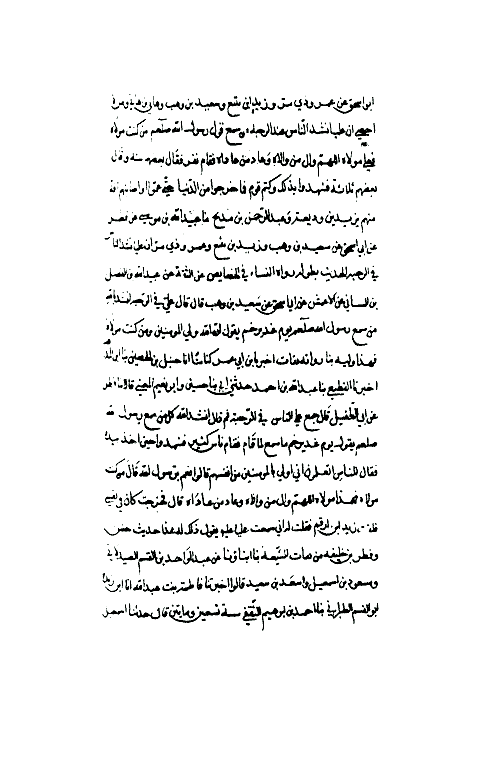 ابو اسحق عن عمرو ذي مر وزيد بن يثيع وسعيد بن وهب وهاني بن هاني
ان عليا نشد الناس عند الرحبة من سمع قول رسول الله صلعم من كنت مولاه
فعلي مولاه اللهم وال من والاه وعاد من عاداه فقام نفر فقال بعضهم ستة وقال
بعضهم ثلاثة فشهدوا بذلك وكتم قوم فما خرجوا من الدنيا حتى عموا
منهم يزيد بن وديعة وعبد الرحمن بن مدلج عبيد الله بن موسى عن فطر
عن ابي اسحق عن سعيد بن وهب وزيد بن يثيع وعمرو ذي مر ان عليا نشد
في الرحبة الحديث بطوله رواه النسائي في الخصايص عن عبد الله بن الفضل
عن الاعمش عن ابي اسحق عن سعيد بن وهب قال قال علي في الرحبة انشد
من سمع رسول الله صلعم يوم غدير خم يقول ان الله ولي المومنين ومن كنت مولاه
فهذا وليه اخبرنا ابن ابي عمر كتابة انا حنبل انا ابن الحصين
اخبرنا القطيعي نا عبد الله بن احمد حدثني ابي نا حسين وابو نعيم المعنى قالا
عن ابي الطفيل قال جمع علي الناس في الرحبة ثم قال انشد الله كل من سمع رسول الله
صلعم يقول يوم غدير خم ما سمع لما قام فقام ناس كثير فشهدوا حين اخذ بيده
فقال للناس اتعلمون اني اولى بالمومنين من انفسهم قالوا نعم يرسول الله قال من كنت
مولاه فهذا مولاه اللهم وال من والاه وعاد من عاداه قال فخرجت كان في نفسي
زيد بن ارقم فقلت له اني سمعت عليا يقول ذكر هذا حديث حسن
وفطر بن خليفة من الشيعة عن عبد الواحد بن القسم الصيدلاني
ومسعود بن اسمعيل واسعد بن سعيد قالوا اخبرتنا فاطمة بنت عبد الله انا ابن ريذة
ابو القسم الطبراني نا احمد بن ابرهيم الثقفي سنة تسعين ومايتين قال حدثنا اسمعيل